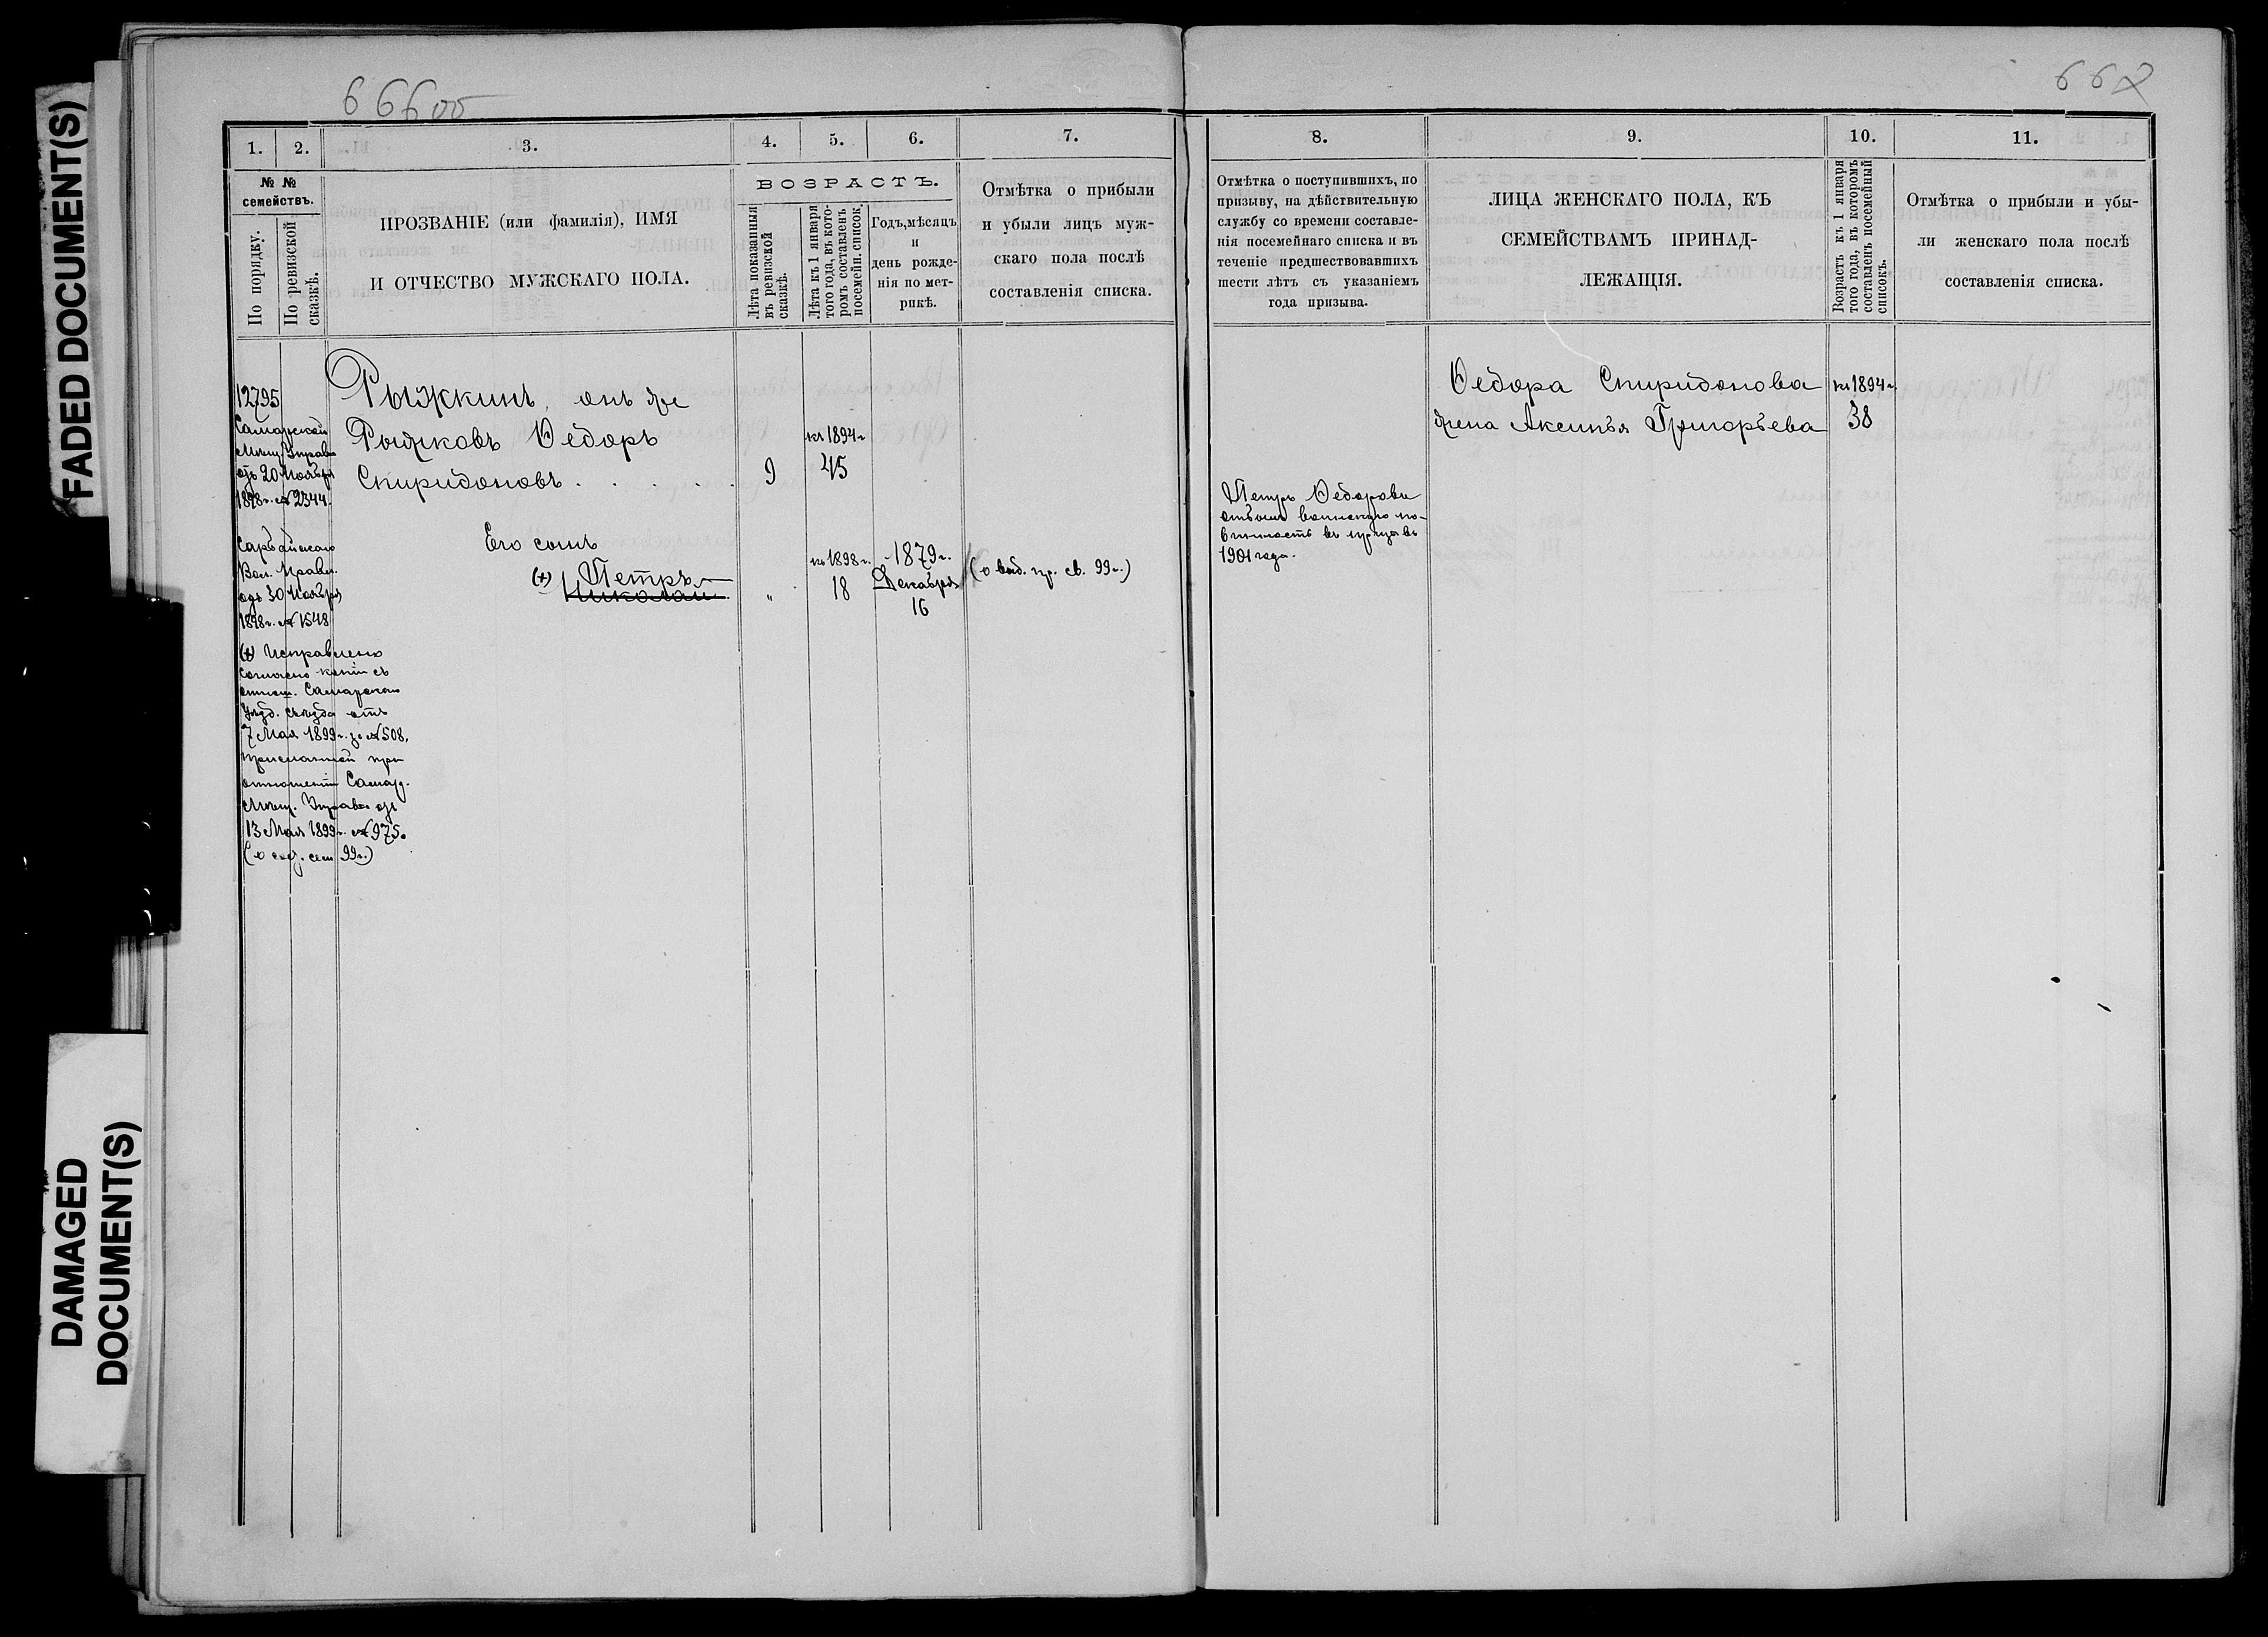 FADED DOCUMENT(S)
DAMAGED
DOCUMENT(S)
666об
1. 2. 3. 4. 5. 6. 7.
№ №
семействъ.
По порядку.
По ревизской
сказкѣ.
ПРОЗВАНІЕ (или фамилія), ИМЯ
И ОТЧЕСТВО МУЖСКАГО ПОЛА.
ВОЗРАСТЪ.
Лѣта показанныя
въ ревизской
сказкѣ.
Лѣта къ 1 января
того года, въ кото-
ромъ составленъ
посемейн. списокъ.
Годъ, мѣсяцъ
и
день рожде-
нія по мет-
рикѣ.
Отмѣтка о прибыли
и убыли лицъ муж-
скаго пола послѣ
составленія списка.
12795
Самарской
Мѣщ. Управы
отъ 20 Ноября
1898 г. № 2344.
Рыжкинъ, онъ же
Рыжковъ Ѳедоръ
Спиридоновъ . . . . . 9
къ 1894 г
45
Сарбайскаго
Вол. Правл.
отъ 30 Ноября
1898 г. № 1548
Его сынъ
(+) Петръ
Николай "
къ 1898 г.
18
1879 г.
Декабря
16
(о выд. пр. св. 99 г.)
(+) Исправлено
согласно копіи съ
отнош. Самарскаго
Уѣзд. съѣзда отъ
7 Мая 1899 г. за № 508,
присланной при
отношеніи Самар.
Мѣщ. Управы отъ
13 Мая 1899 г. № 975.
(о сем. 99 г.)
667
8. 9. 10. 11.
Отмѣтка о поступившихъ, по
призыву, на дѣйствительную
службу со времени составле-
нія посемейнаго списка и въ
теченіе предшествовавшихъ
шести лѣтъ съ указаніемъ
года призыва.
ЛИЦА ЖЕНСКАГО ПОЛА, КЪ
СЕМЕЙСТВАМЪ ПРИНАД-
ЛЕЖАЩІЯ.
Возрастъ къ 1 января
того года, въ которомъ
составленъ посемейный
списокъ.
Отмѣтка о прибыли и убы-
ли женскаго пола послѣ
составленія списка.
Ѳедора Спиридонова
жена Аксинья Григорьева
къ 1894 г.
38
Петръ Ѳедоровъ
отбылъ воинскую по-
винность въ призывъ
1901 года.